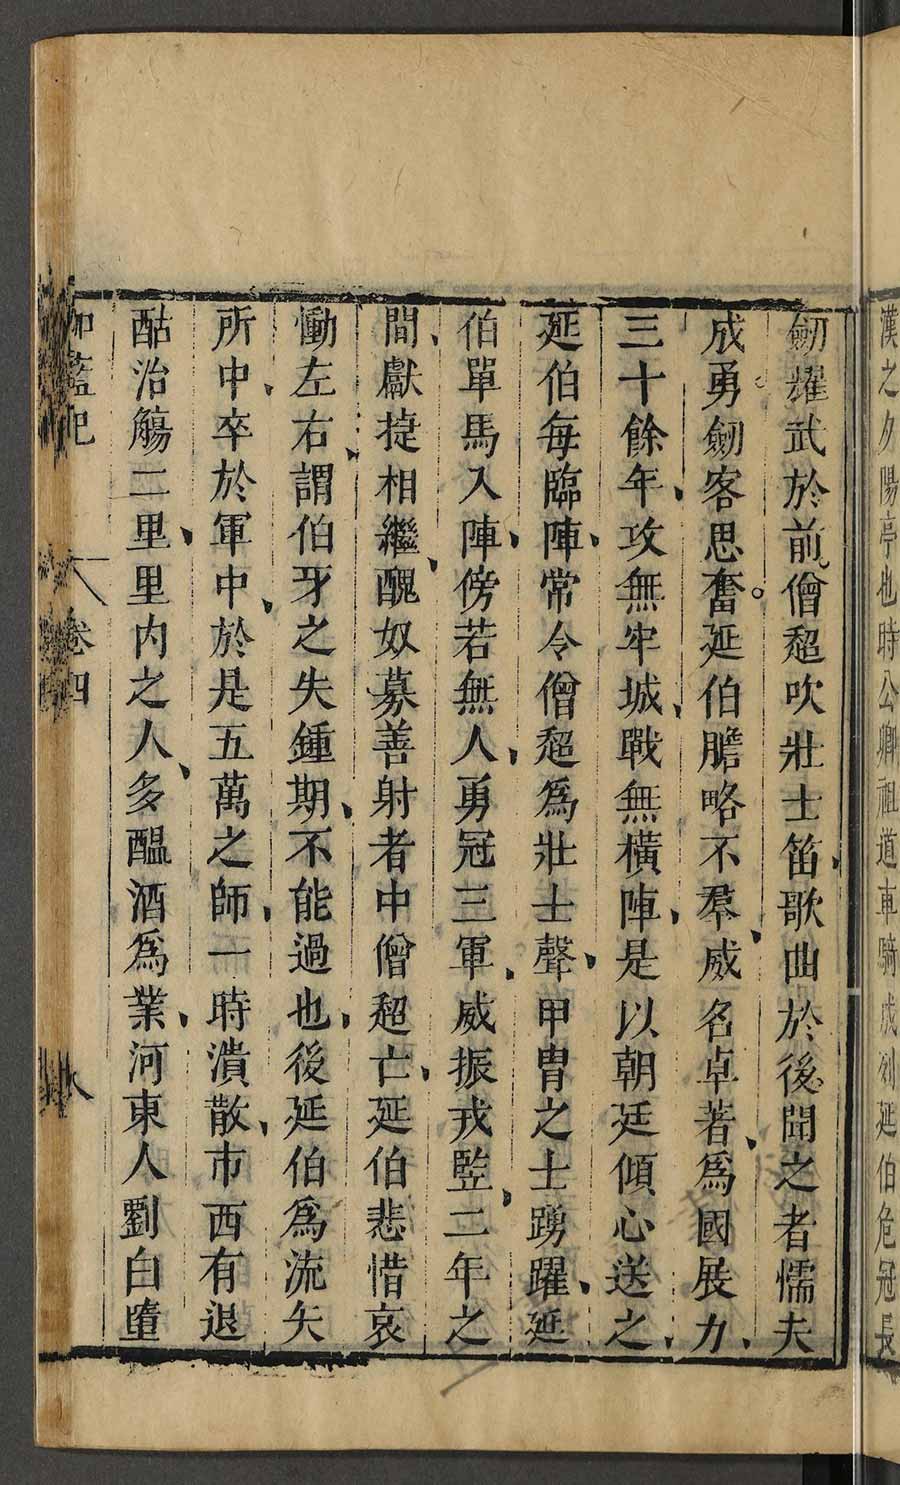 漢之夕陽亭也時公卿祖道車騎成列延伯危冠長
劒耀武於前僧超吹壯士笛歌曲於後聞之者懦夫
成勇劒客思奮延伯膽略不羣威名卓著爲國展力
三十餘年攻無牢城戰無橫陣是以朝廷傾心送之
延伯每臨陣常令僧超爲壯士聲甲冑之士踴躍延
伯單馬入陣傍若無人勇冠三軍威振戎竪二年之
間獻捷相繼醜奴募善射者中僧超亡延伯悲惜哀
慟左右謂伯牙之失鍾期不能過也後延伯爲流矢
所中卒於軍中於是五萬之師一時潰散市西有退
酤治觴二里里內之人多醞酒爲業河東人劉白墮
伽藍記 卷四 八